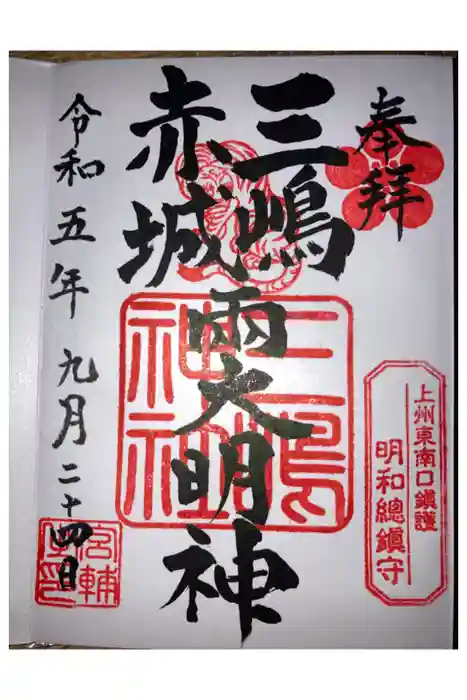 奉拝
三嶋
赤城
両大明神
令和五年九月二十四日
三嶋
神社
上州東南口鎮護
明和總鎮守